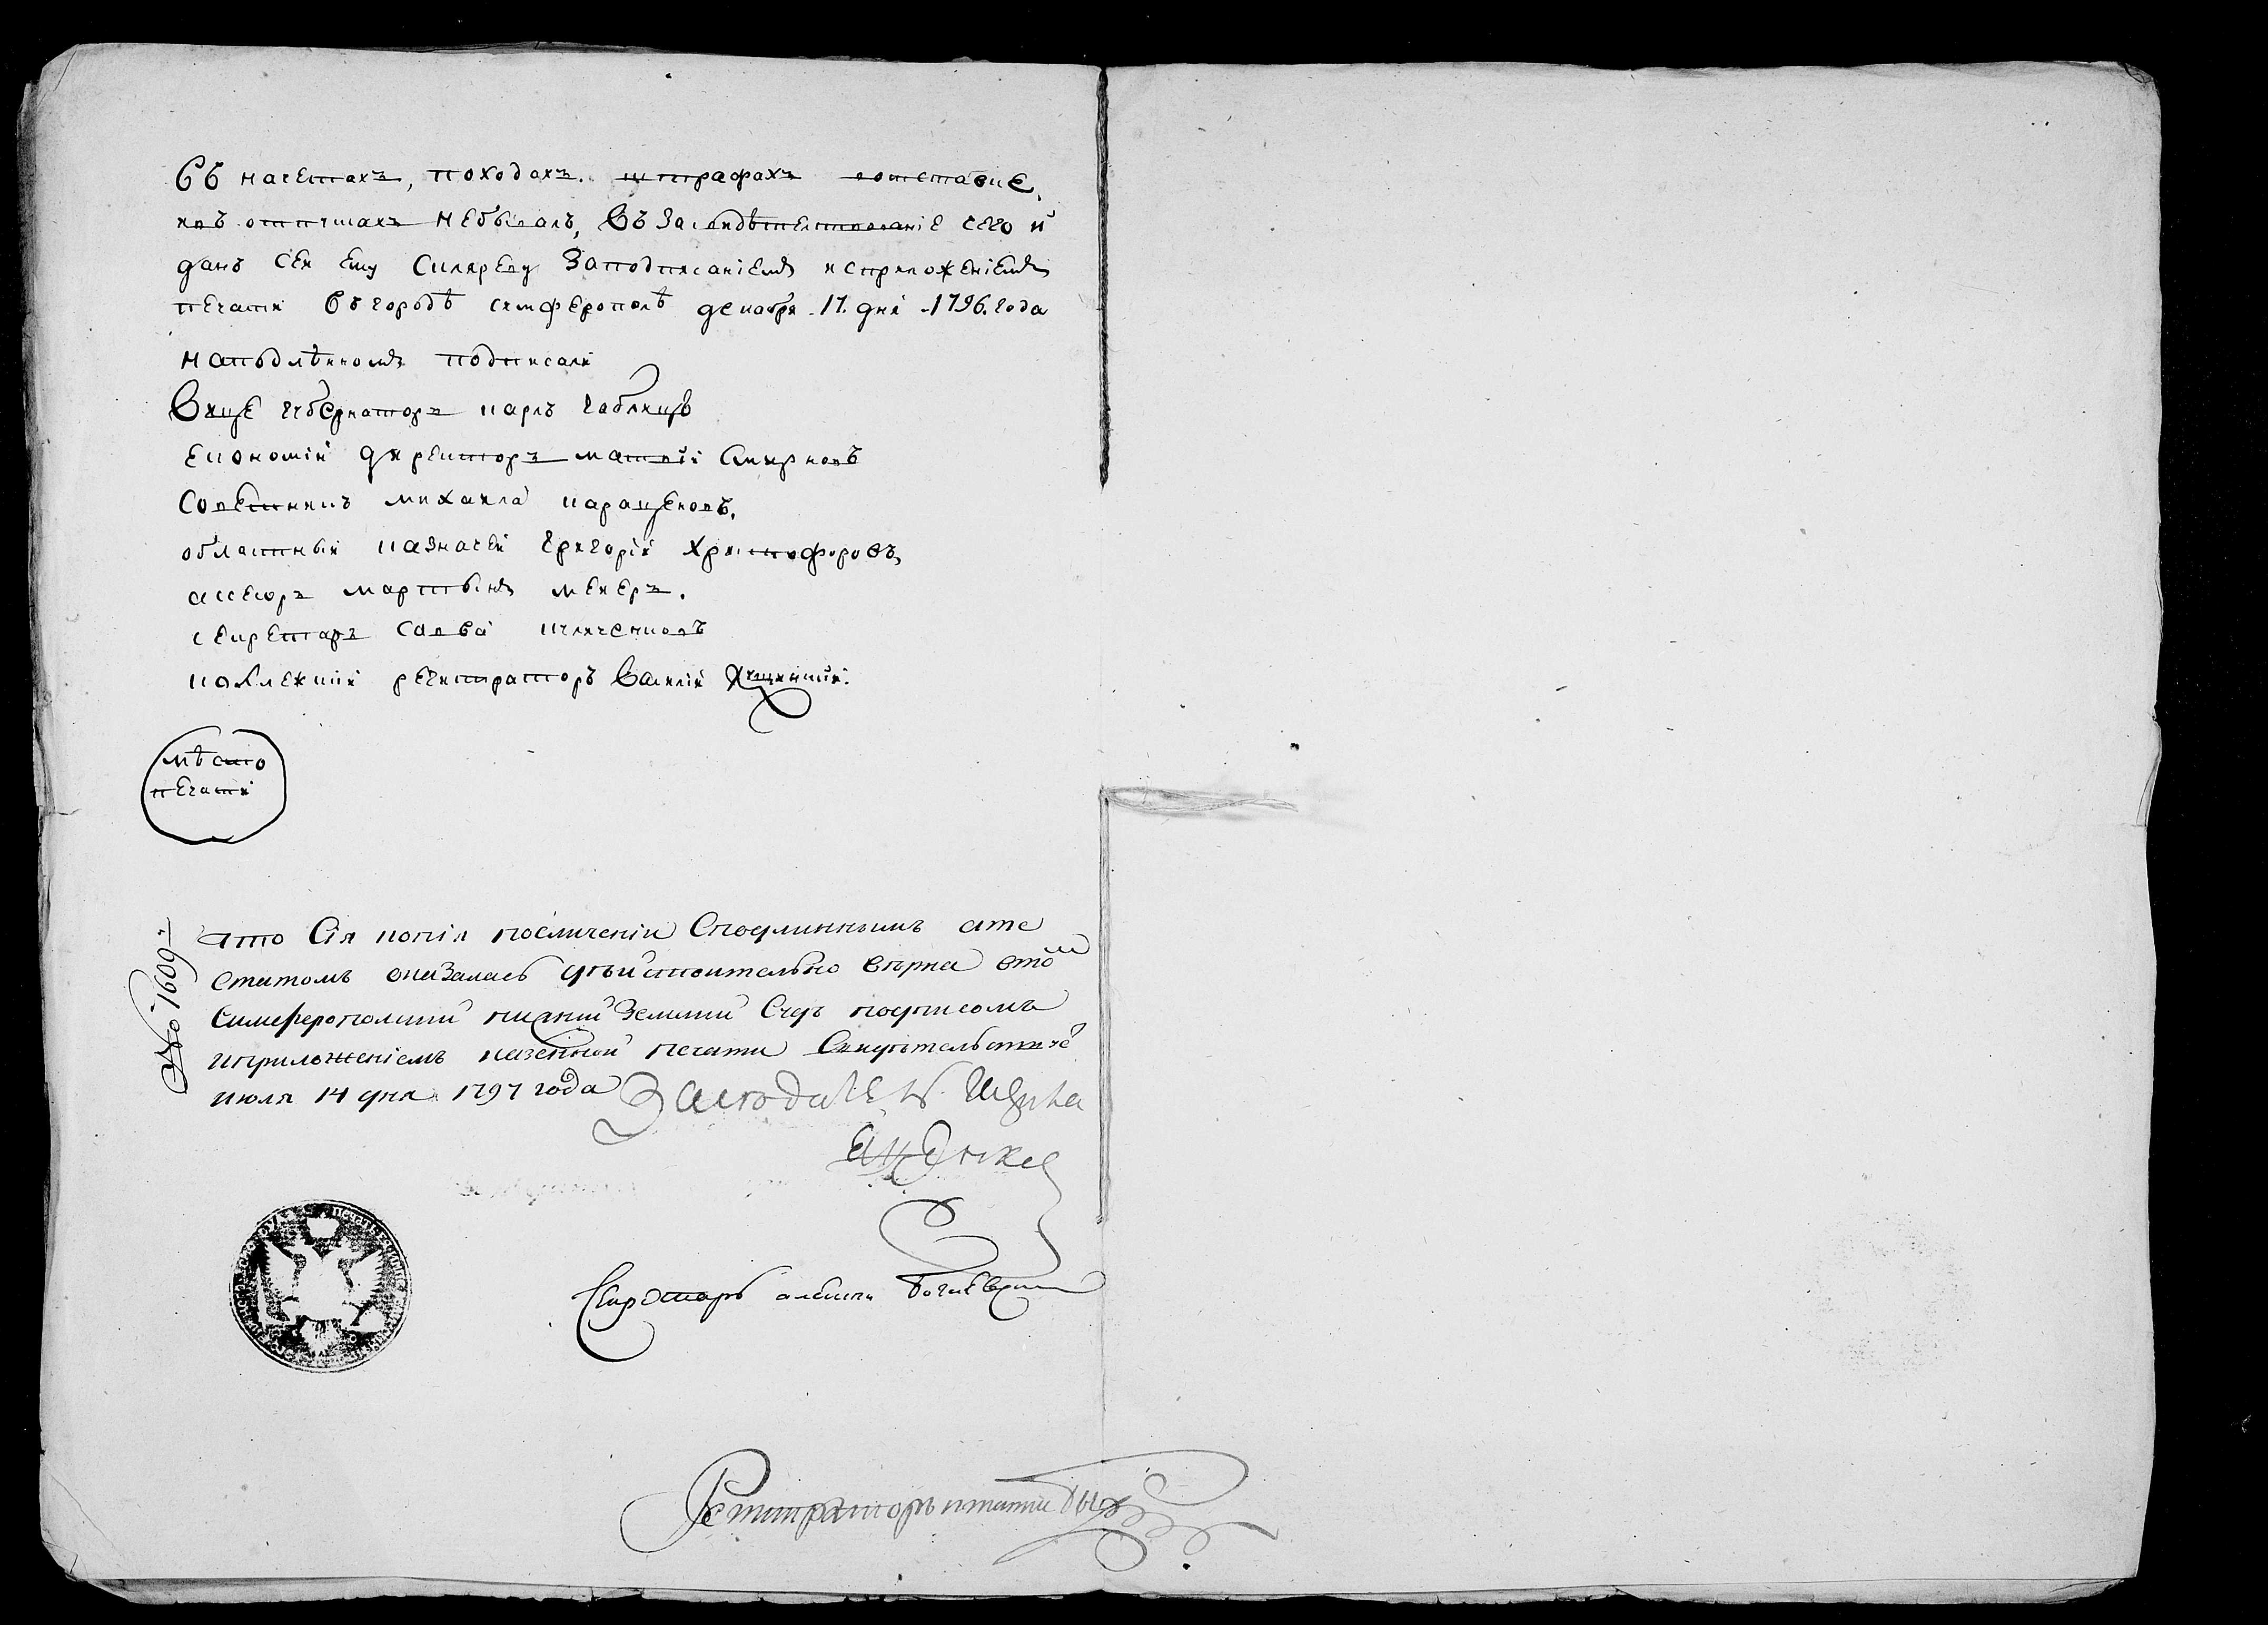 въ начетахъ, походахъ. штрафахъ ивотставке,
ивъ отпускахъ небывалъ, Въ Засвидѣтелствование сего и
данъ сей ему Склярев​у Заподписаніемъ исприложеніемъ
печати въ городѣ симферополѣ декабря 17. дня 1796. года
наподлѣнномъ подписали
Вице губернаторъ карлъ габлицъ
економіи директоръ матвѣй Смирновъ
Советникъ михаила каращеновъ.
областный казначей григорій христофоровъ,
ассесоръ мартынъ мейеръ.
секретаръ савва
коллежкій регистраторъ Василій
мѣсто
печати
№ 1609
что Сія копія посличеніи Сподлиннымъ ате
статомъ оказалась дѣйствительно вѣрна втом
Симферополский нижний Земский Судъ подписомъ
иприложеніемъ казенной печати Свидѣтельствуе
июля 14 дня 1797 года
Секретарь алексей
Регистраторъ